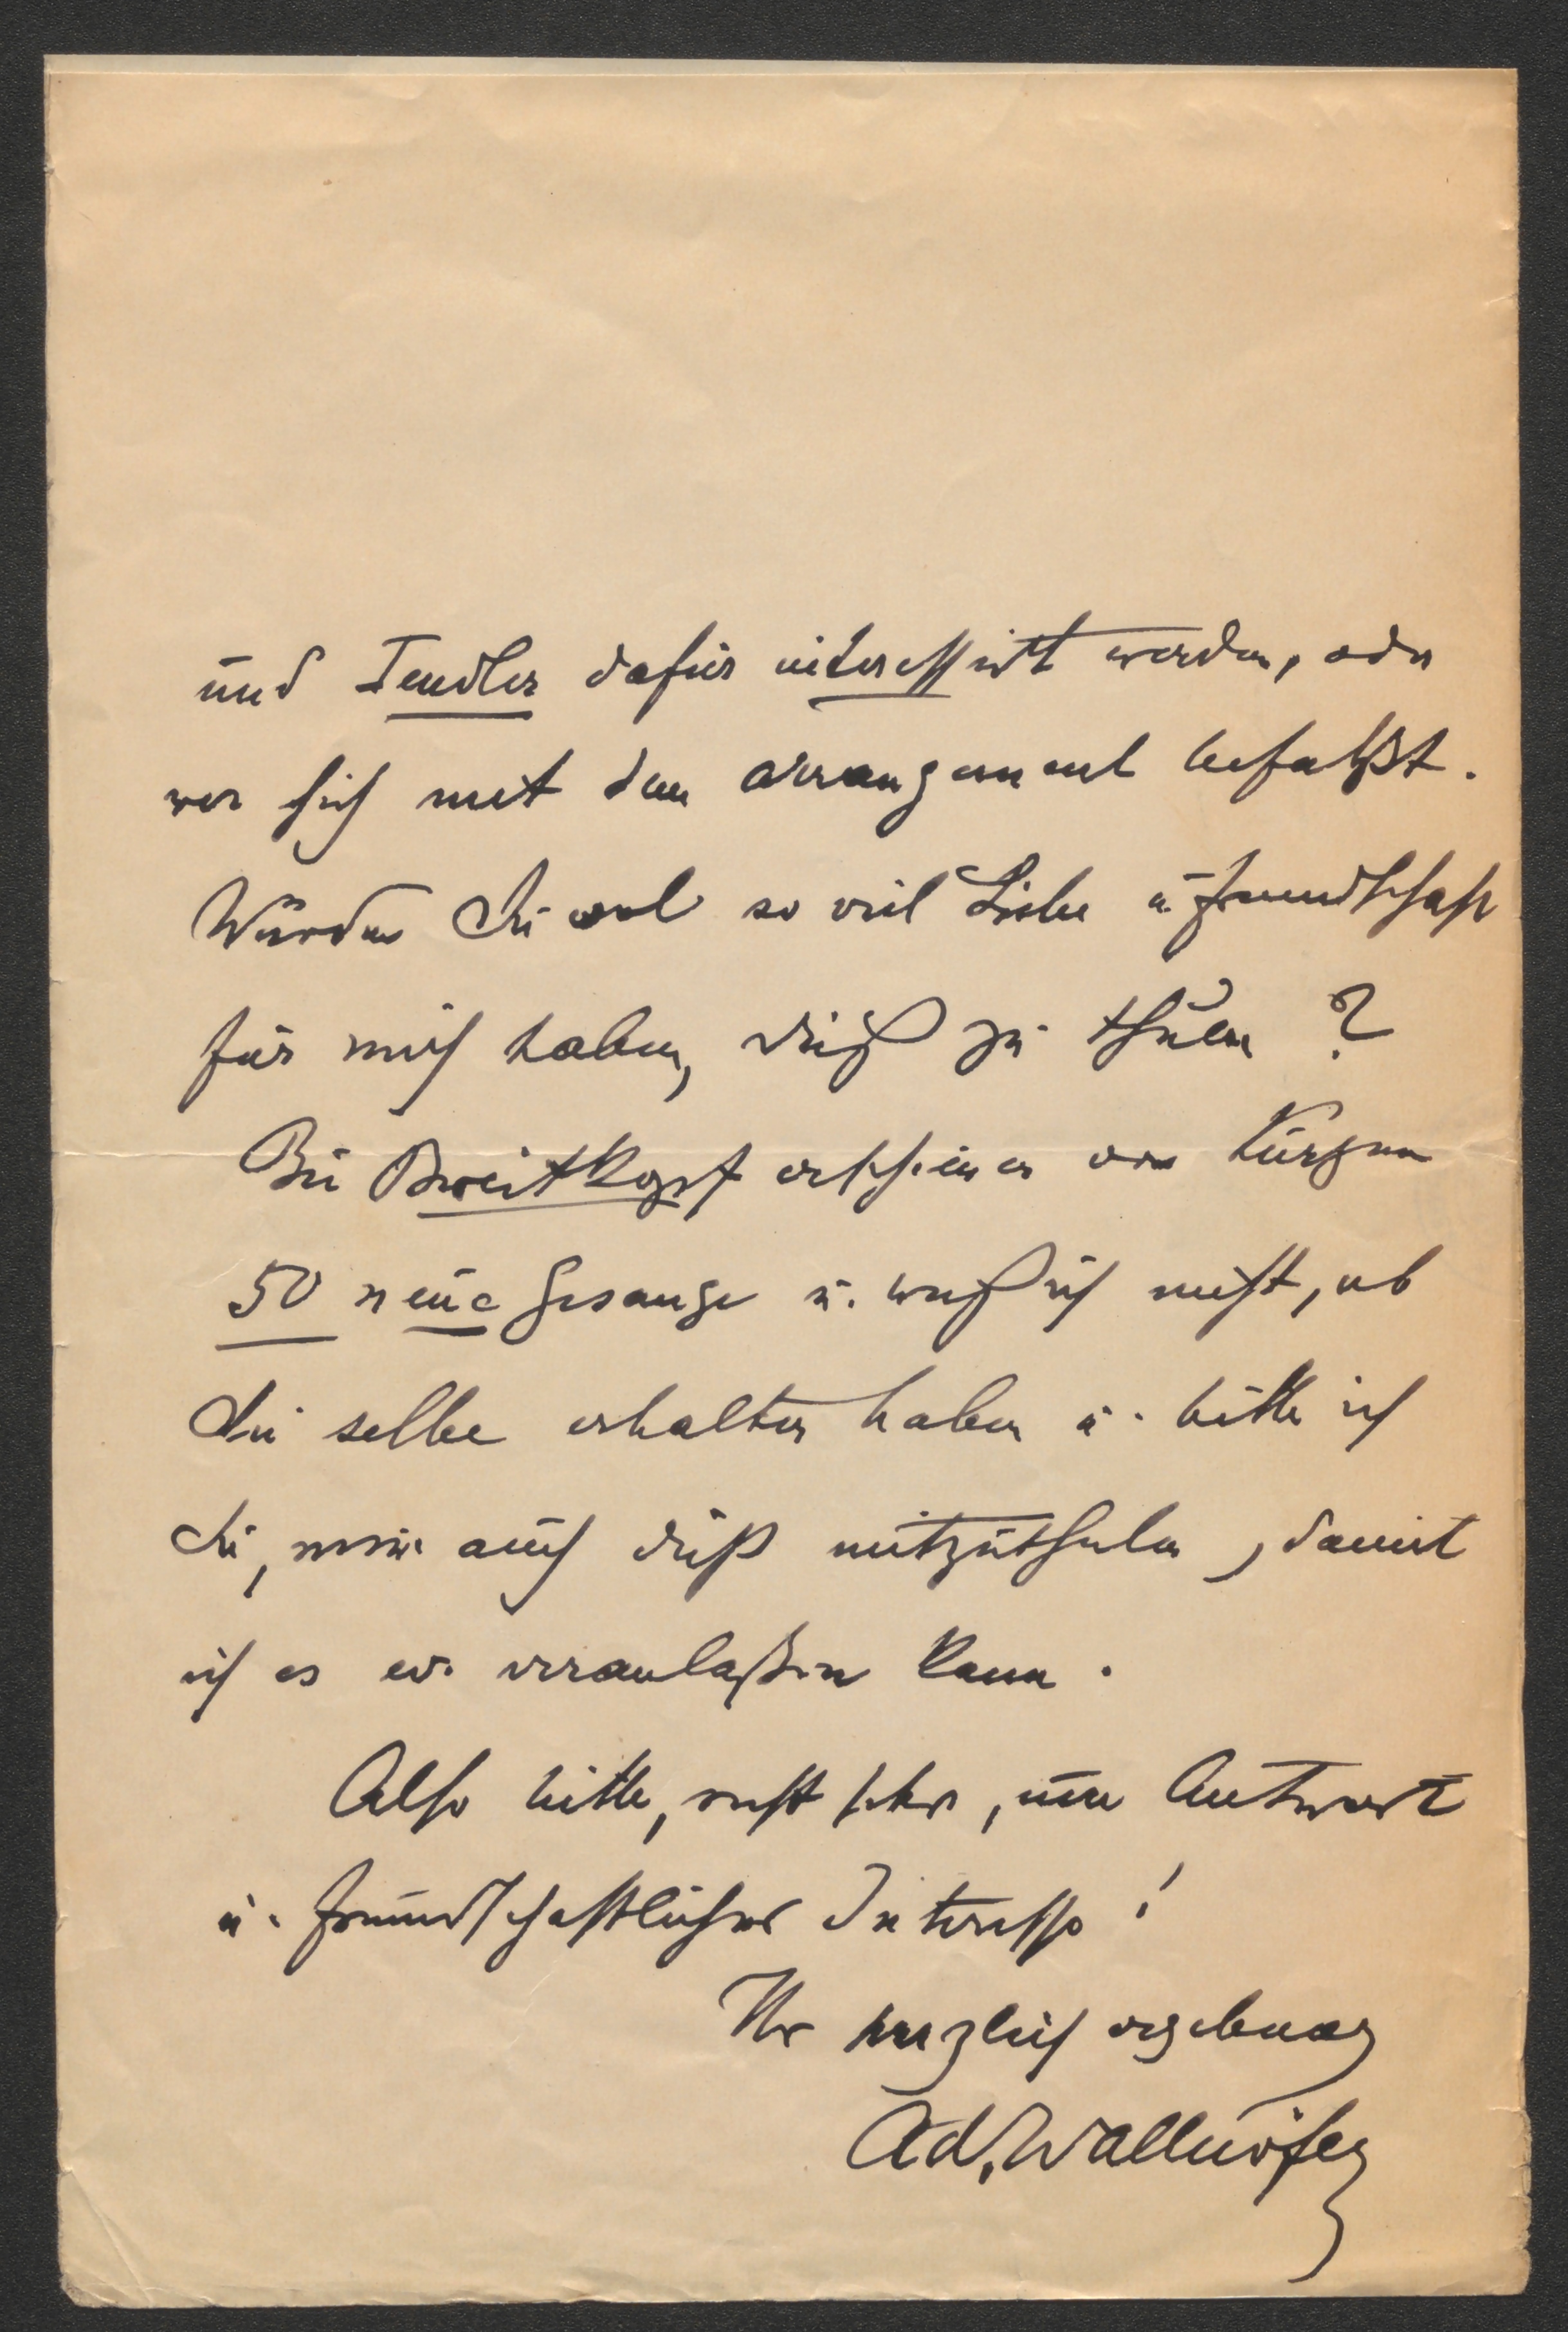 und Tendler dafür interessirt werden, oder
wer sich mit dem arrangement befaßt.
Würden Sie wol so viel Liebe u Freundschaft
für mich haben, dieß zu thuen?
Bei Breitkopf erschienen vor Kurzem
50 neue Gesange u. weiß ich nicht, ob
Sie selbe erhalten haben u. bitte ich
Sie, mir auch dieß mitzutheilen, damit
ich es ev. veranlaßen kann.
Also bitte, recht sehr, um Antwort
u. freundschaftliches Interesse!
Ihr herzlich ergebener
Ad. Wallnöfer